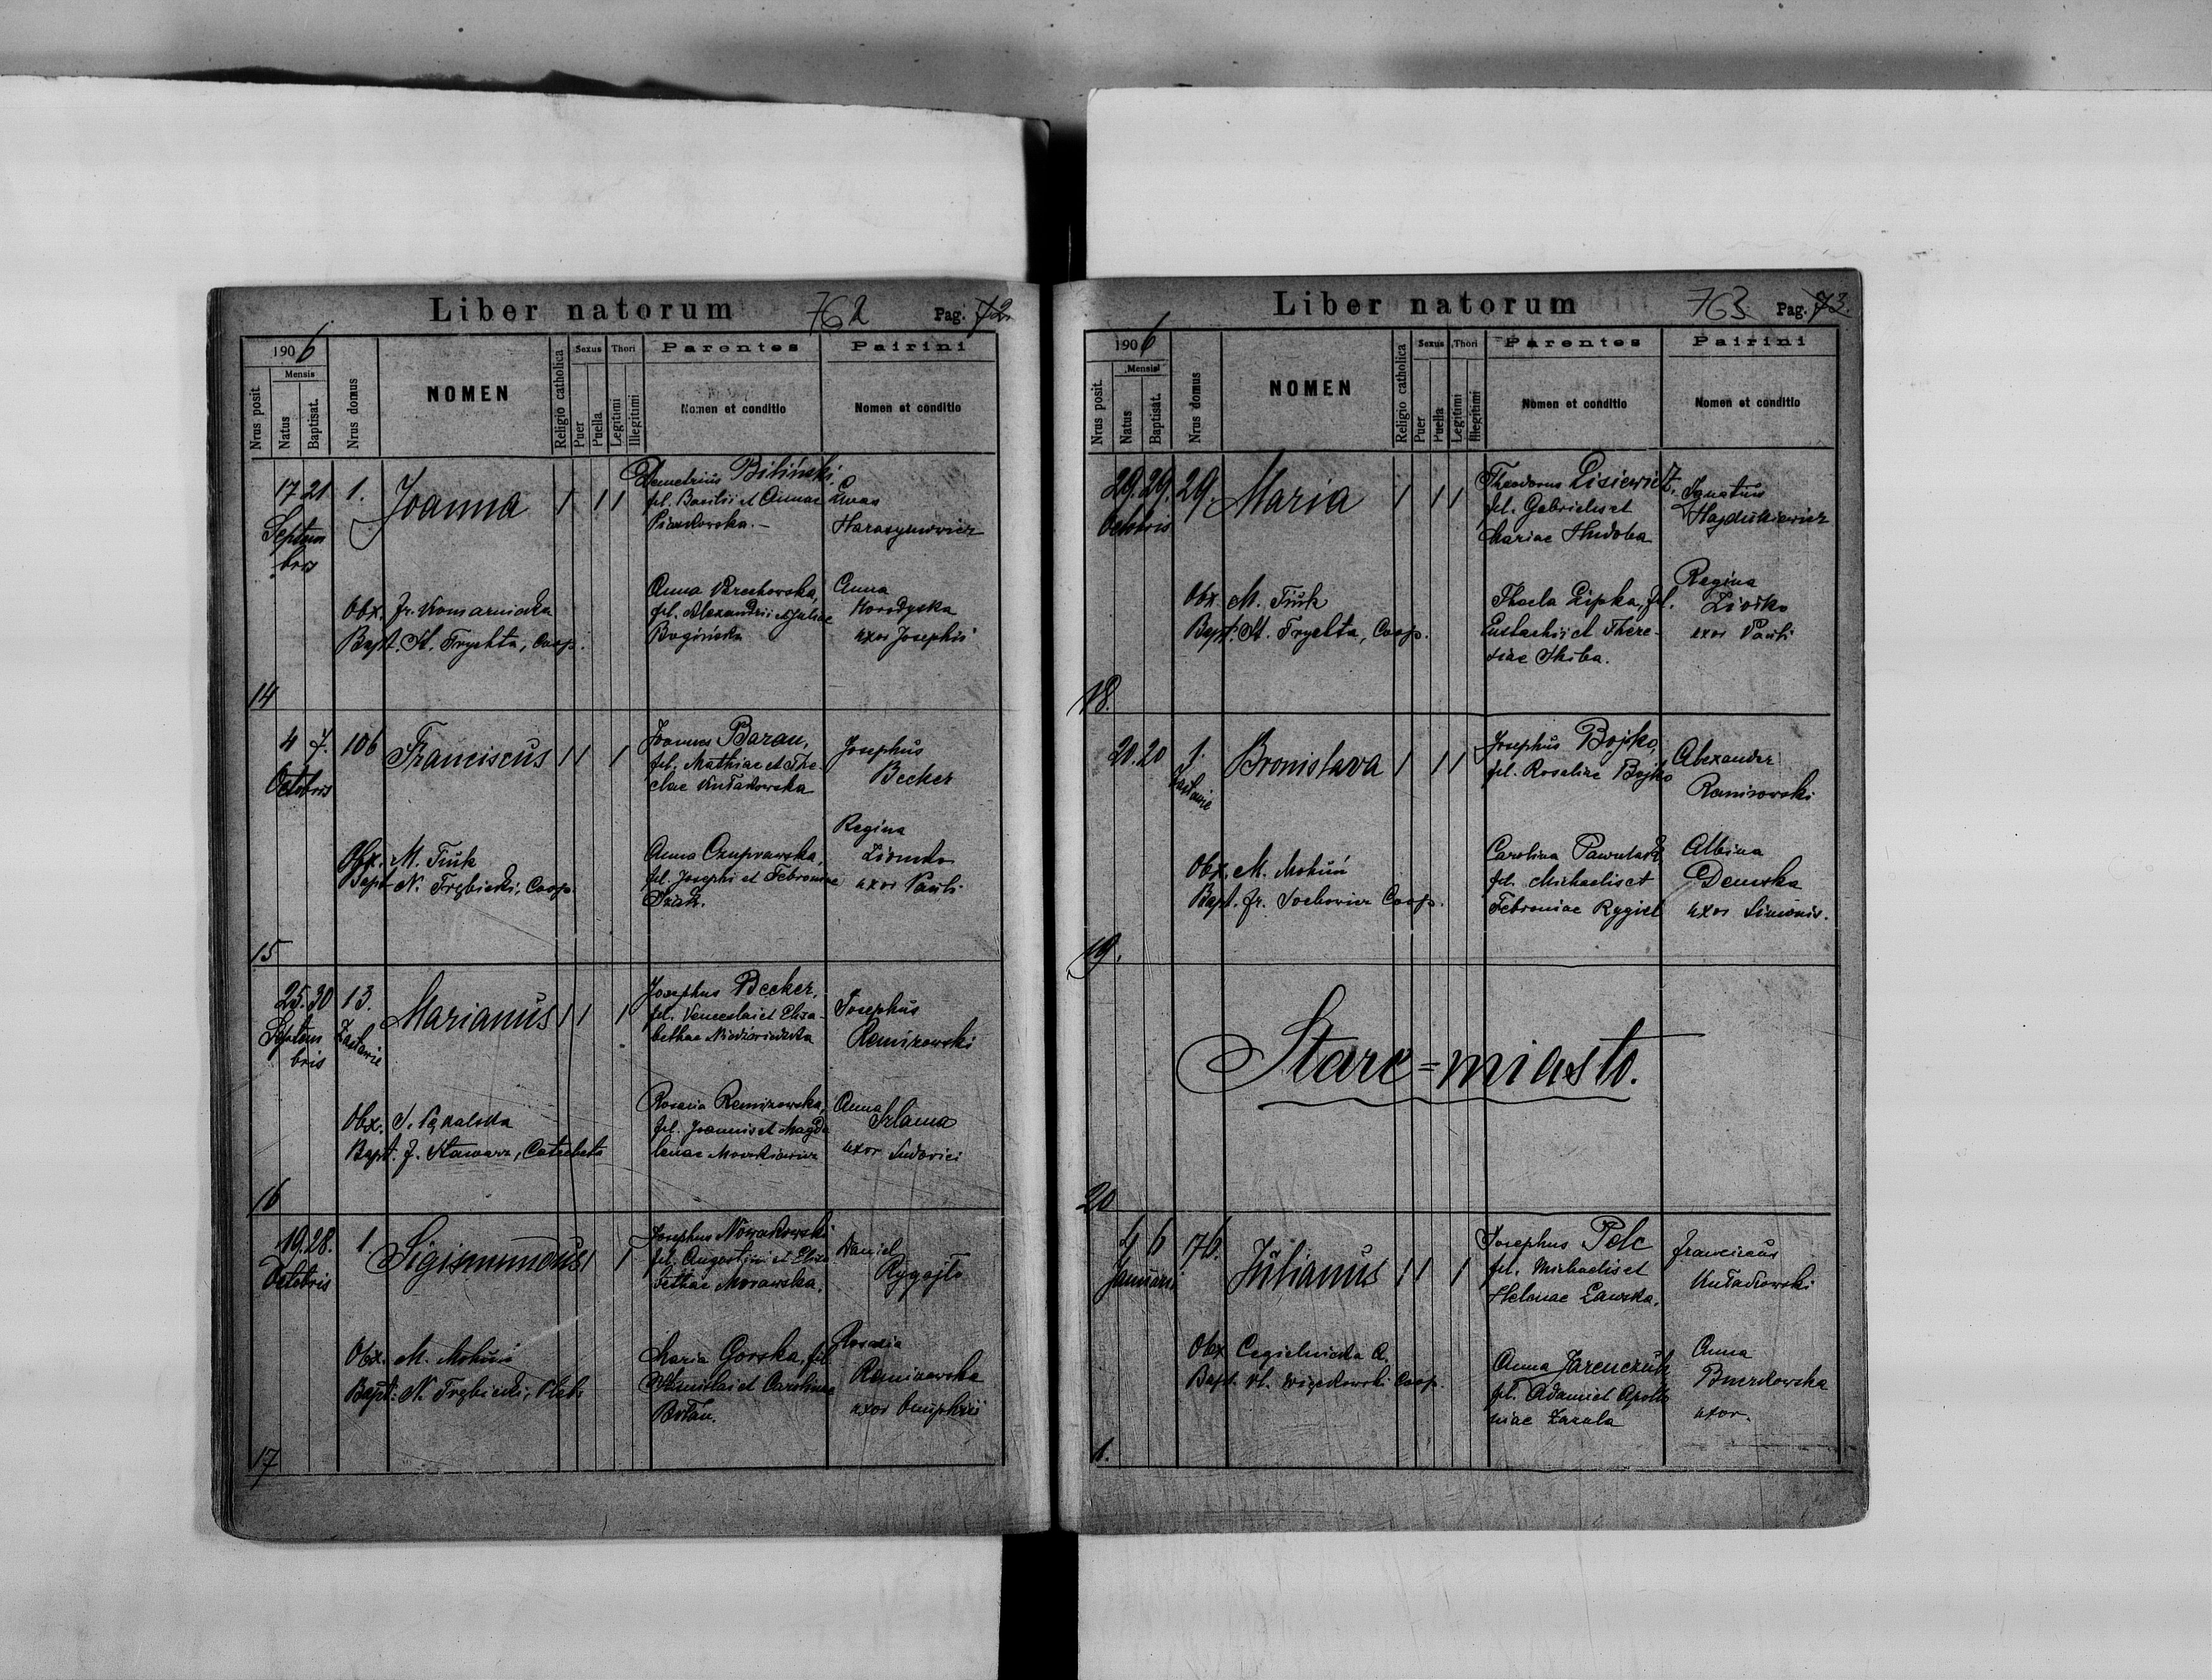 Liber natorum 762 Pag. 72.
1906
Mensis
Nrus posit.
Natus
Baptisat.
Nrus domus
NOMEN
Religio catholica
Sexus
Puer
Puella
Thori
Legitimi
Illegitimi
Parentes
Nomen et conditio
Patrini
Nomen et conditio
17 21 1. Joanna 1 1 1
Septem
bris
Demetrius Biliński,
fil. Basilii et Annae
Lucas
Harasymowicz
Obx. Fr. Komarnicka
Bapt. St. Trychta, Coop.
fil. Alexandrii et Juliae
Anna
uxor Josephi
14
4 7. 106 Franciscus 1 1 1
Octobris
Joannes Baran,
fil. Mathiae et The-
clae Kułakowska
Josephus
Becker
Obx. M. Fiuk
Bapt. N. Trębicki, Coop.
Anna
fil. Josephi et Febroniae
Regina
uxor Pauli
15
25. 30 13. Marianus 1 1 1
Septem
bris
Zastawie
Josephus Becker,
fil. Venceslai et Elisa-
bethae Niedźwiedzka
Josephus
Remizowski
Obx.
Bapt. J. Stawarz, Catecheta
Rosalia Remizowska,
fil. Joannis et Magda
lenae
Anna
uxor Ludovici
16
19. 28. 1. Sigismundus 1 1
Octobris
Josephus Nowakowski
fil. Augustini et Elisa
bethae Morawska.
Daniel
Rygajło
Obx. M. Mohuń
Bapt. N. Trębicki,
Maria Gorska, fil.
Stanislai et Carolinae
Rosalia
Remizowska
uxor Onuphrii
17
Liber natorum 763 Pag. 73.
1906
Mensis
Nrus posit.
Natus
Baptisat.
Nrus domus
NOMEN
Religio catholica
Sexus
Puer
Puella
Thori
Legitimi
Illegitimi
Parentes
Nomen et conditio
Patrini
Nomen et conditio
29. 29. 29. Maria 1 1 1
Octobris
Theodorus Lisiewicz,
fil. Gabrielis et
Mariae
Ignatius
Hajdukiewicz
Obx. M. Fiuk
Bapt. St. Trychta, Coop.
Thecla Lipka, fil.
Eustachii et There-
siae Skiba.
Regina
uxor Pauli
18.
20. 20 1. Bronislava 1 1 1
Zastawie
Josephus Bojko,
fil. Rosaliae Bojko
Alexander
Remizowski
Obx. M. Mohuń
Bapt. Fr. Sochowicz Coop.
Carolina
fil. Michaelis et
Febroniae Rygiel
Albina
Demska
uxor Simonis.
19.
Stare=miasto.
20
4 6 76. Julianus 1 1 1
Januarii
Josephus Pelc
fil. Michaelis et
Helenae Ławska.
Franciscus
Kułakowski
Obx. Cegielnicka A.
Bapt. Coop.
Anna Jarenczuk
fil. Adami et Apollo
niae Zarala
Anna
uxor.
1.